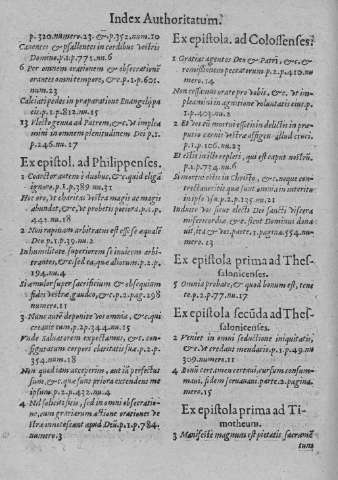 Index Authoritatum.
p.320.numero.23. & p.352.num.10
Canentes & psallentes in cordibus vestris
Domino.p.1.p.771.nu.6
6 Per omnem orationem & obsecrationẽ
orantes omni tempore, &c.p.1.p.601.
num.23
Calciati pedes in præparationẽ Euangelij pa
cis.p.1.p.812.nu.15
13 Flecto genua ad Patrem, &c. vt implea
mini in omnem plenitudinem Dei p.1.
p.246.nu.27
Ex epistol. ad Philippenses.
1 Coarctor autem è duobus, &c. quid eligã
ignoro.p.1.p.389.nu.31
Hoc oro, vt charitas vestra magis ac magis
abundet, &c. vt probetis potiora.p.1.p.
442.nu.18
2 Non rapinam arbitratus est esse se equalẽ
Deo p.1.p.39.nu.2
In humilitate superiorem se inuicem arbi-
trantes, &c. sed ea, quæ aliorum.p.2.p.
194.nu.4
Si immolor super sacrificium & obsequium
fidei vestræ, gaudeo, &c.p.2.pag.298
numero.11
3 Nunc autẽ deponite vos omnia, &c. qui
creauit eum.p.2.p.344.nu.15
Vnde Saluatorem expectamus, &c. con-
figuratum corpori charitatis suæ.p.2.p.
354.num.18
Non quod iam acceperim, aut iã perfectus
sum, &c. quæ sunt priora extendens me
ipsum.p.2.p.432.nu.4
4 Nihil solliciti sitis, sed in omni obsecratio-
ne, cum gratiarum actione orationes ve
stræ innotescant apud Deũ.p.1.p.784.
numero.3
Ex epistola. ad Colossenses.
1 Gratias agentes Deo & Patri, &c. &
remissionem peccatorum.p.2.p.410.nu
mero.14
Non cessamus orare pro vobis, &c. vt im-
pleamini in agnitione voluntatis eius.p.
1.p.403.nu.2
2 Et vos cũ mortui essetis in delictis in præ-
putio carnis vestræ affigens illud cruci.
p.1.p.106.nu.23
Et estis in illo repleti, qui est caput nostrũ.
p.1.p.734.nu.6
Si mortui estis in Christo, &c. neque con-
trectaueritis quæ sunt omnia in interitu
in ipso vsu.p.2.p.125.nu.21
Induite vos sicut electi Dei sancti viscera
misericordiæ. &c. sicut Dominus dona
uit, ita & vos.parte.3.pagina.554.nu-
mero.13
Ex epistola prima ad Thes-
salonicenses.
5 Omnia probate, & quod bonum est, tene
te.p.2.p.77.nu.17
Ex epistola secũda ad Thes-
salonicenses.
2 Veniet in omni seductione iniquitatis,
&c. vt credant mendacio.p.1.p.49.nu
309.numero.11
4 Bonũ certamen certaui, cursum consum-
maui, fidem seruaui.parte.2.pagina.
mero.15
Ex epistola prima ad Ti-
motheum.
3 Manifestè magnum est pietatis sacramẽ
tum